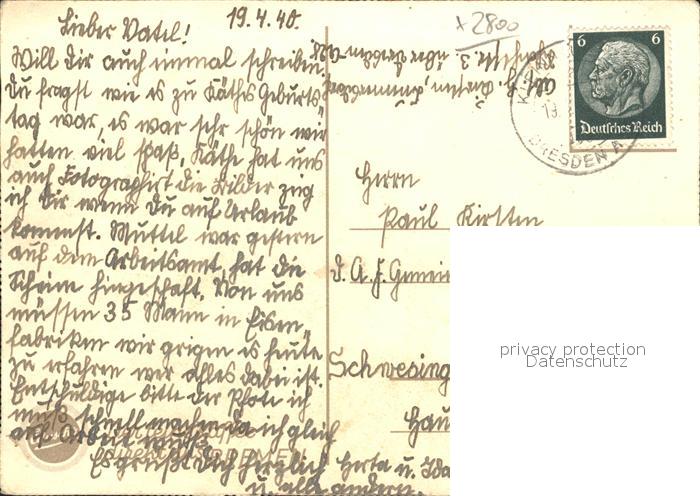 19.4.40.
Lieber Vatel!
Will Dir auch einmal schreiben,
Du fragst wie es zu Käthes Geburts-
tag war, es war sehr schön wir
hatten viel Spaß, Käthe hat uns
auch Fotographirt die Bilder zeig
ich Dir wenn Du auf Urlaub
kommst. Muttel war gestern
auf dem Arbeitsamt, hat die
Scheine hingeschaft, Von uns
müssen 35 Mann in Eisen-
fabriken wir grigen es heute
zu erfahren wer alles dabei ist.
Entschuldige bitte der Pfote ich
muß schnell machen da ich gleich
auf Arbeit muß.
Es grüßt Dich herzlich Herta u. Ida
u. alle andern.
x 2800
6 6
Deutsches Reich
DRESDEN A
Abs. Dresden
3
Herrn
Paul Kirsten
D.A.F. Gemei
Schwesing
privacy protection
Datenschutz